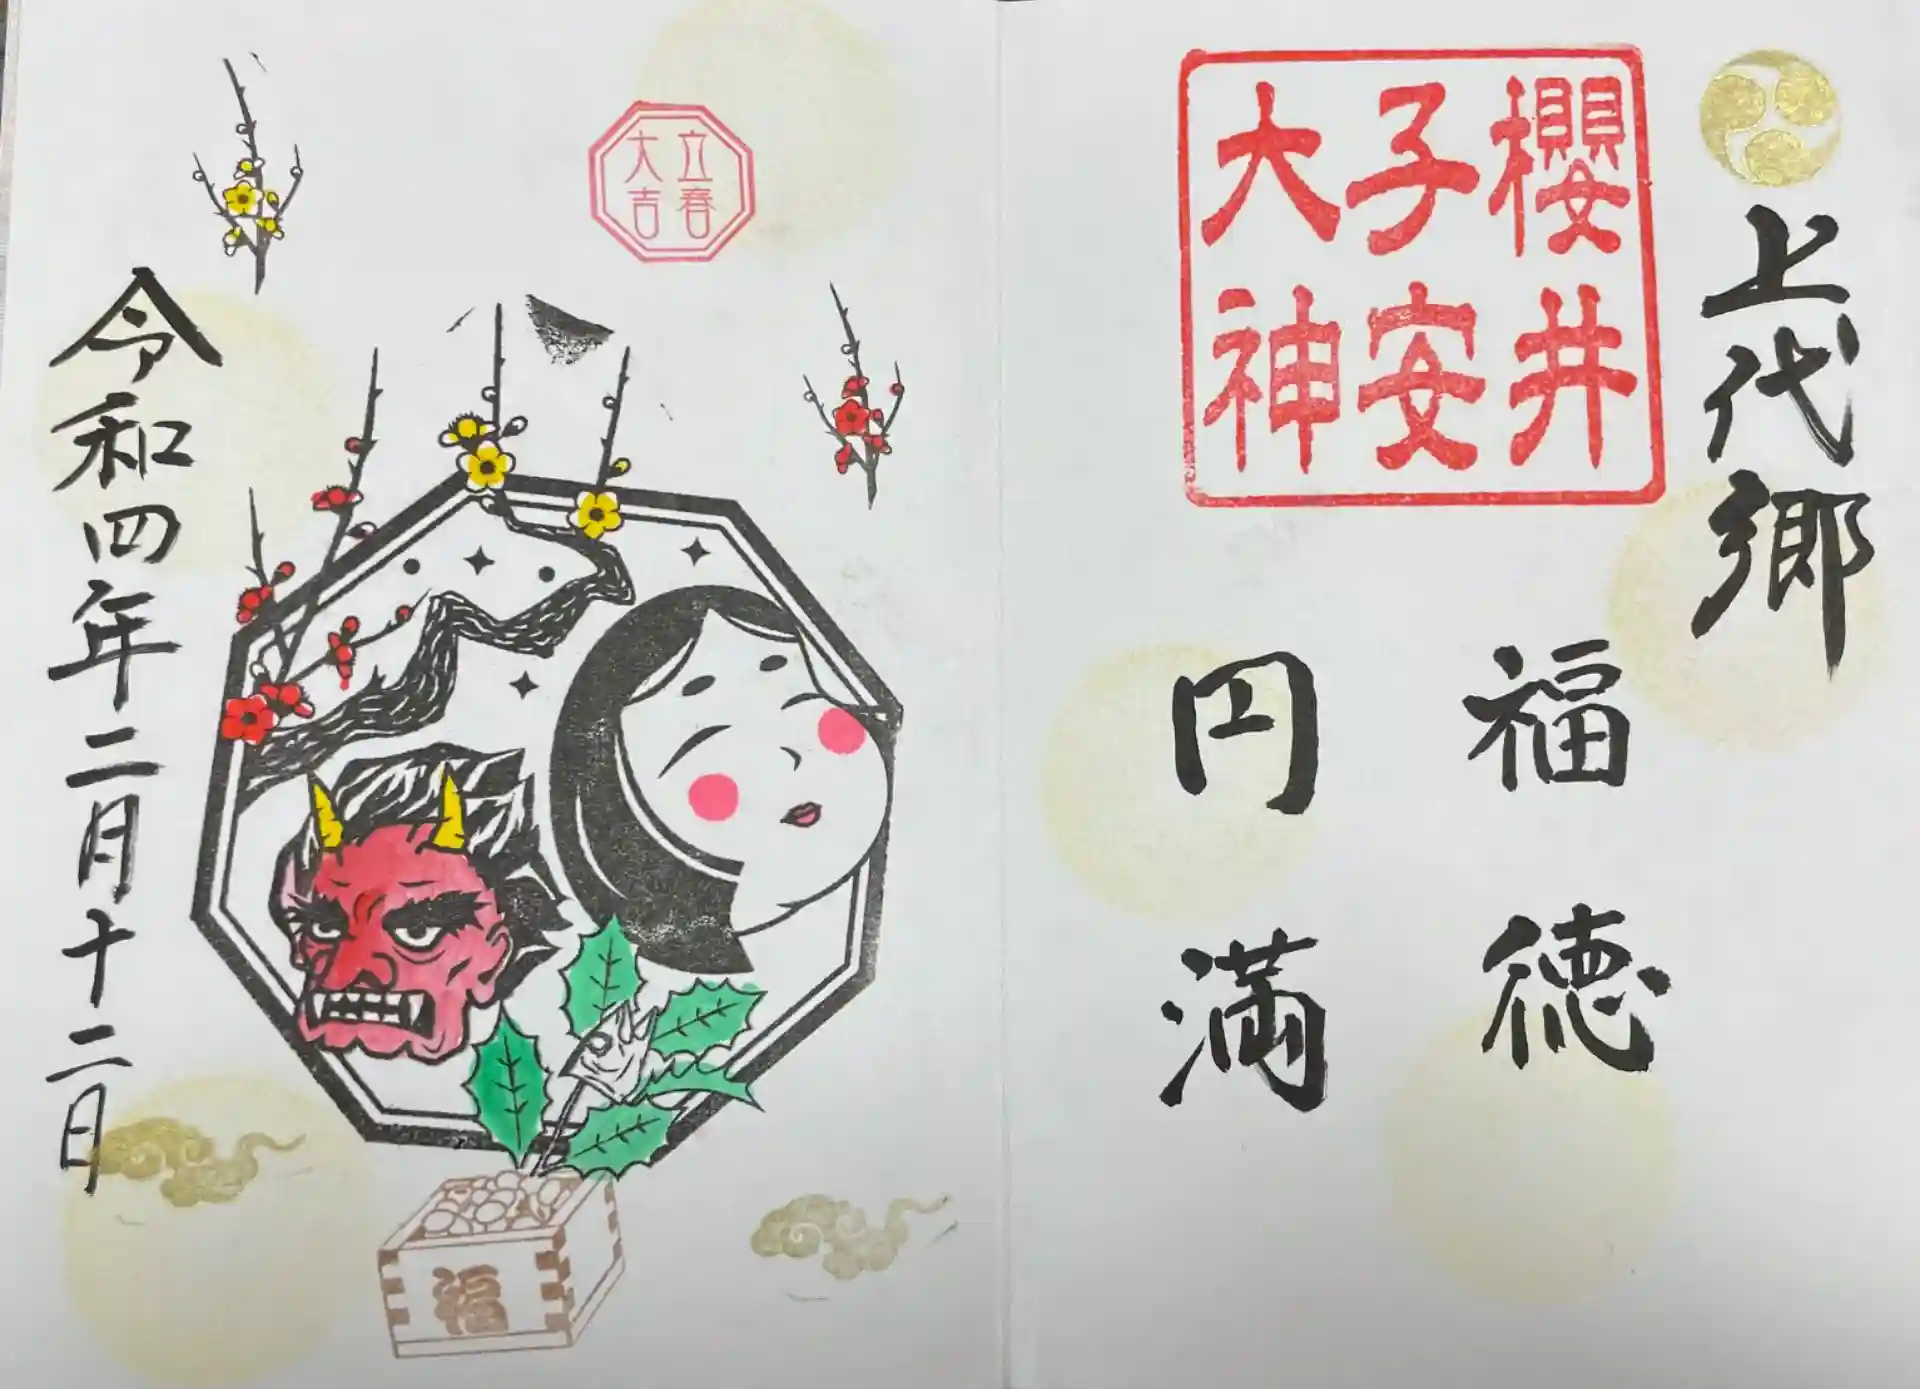 上代郷
櫻井
子安
大神
福徳
円満
立春
大吉
令和四年二月十二日
福